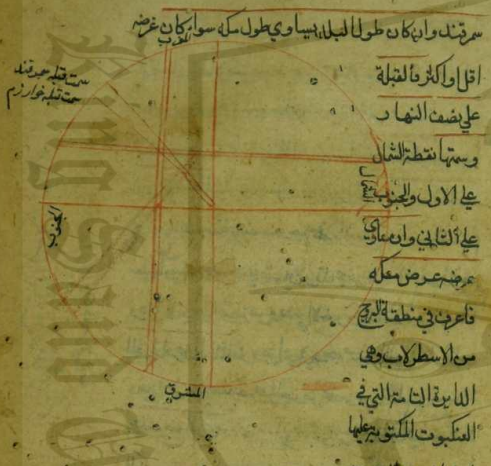 سمرقند وان كان طول البلد يساوي طول مكه سواء كان عرضه
اقل او اكثر فالقبلة
على نصف النهار
وسمتها نقطة الشمال
على الاول والجنوب
على الثاني وان ساوى
عرضه عرض مكه
فاعرف في منطقة البروج
من الاسطرلاب وهي
الدايرة التامة التي في
العنكبوت المكتوب عليها
المغرب
سمت قبلة سمرقند
سمت قبلة خوارزم
الشمال
الجنوب
المشرق